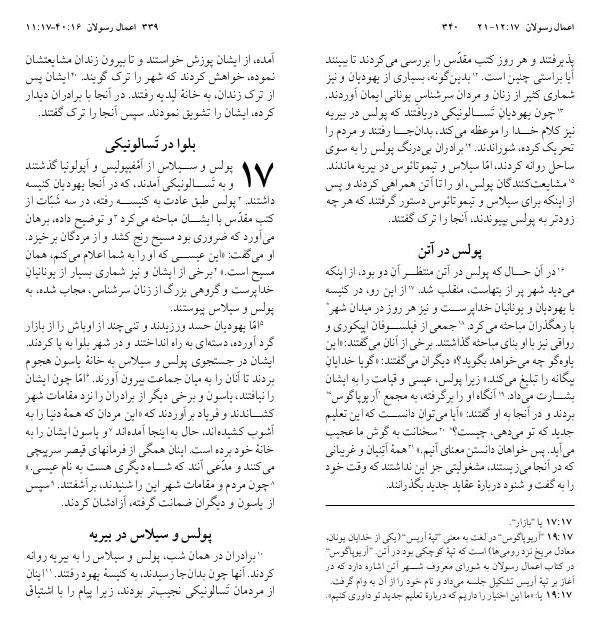 ۳۳۹ اعمال رسولان ۱۶:۴۰–۱۷:۱۱
آمده، از ایشان پوزش خواستند و تا بیرون زندان مشایعتشان
نموده، خواهش کردند که شهر را ترک گویند. ۴۰ایشان پس
از ترک زندان، به خانهٔ لیدیه رفتند. در آنجا با برادران دیدار
کرده، ایشان را تشویق نمودند. سپس آنجا را ترک گفتند.
بلوا در تَسالونیکی
۱۷ پولس و سیلاس از آمْفیپولیس و آپولونیا گذشتند
و به تَسالونیکی آمدند، که در آنجا یهودیان کنیسه
داشتند. ۲پولس طبق عادت به کنیسه رفته، در سه شَبّات از
کتب مقدّس با ایشان مباحثه می‌کرد ۳و توضیح داده، برهان
می‌آورد که ضروری بود مسیح رنج کشد و از مردگان برخیزد.
او می‌گفت: «این عیسی که او را به شما اعلام می‌کنم، همان
مسیح است.» ۴برخی از ایشان و نیز شماری بسیار از یونانیانِ
خداپرست و گروهی بزرگ از زنان سرشناس، مجاب شده، به
پولس و سیلاس پیوستند.
۵امّا یهودیان حسد ورزیدند و تنی‌چند از اوباش را از بازار
گرد آورده، دسته‌ای به راه انداختند و در شهر بلوا به پا کردند.
ایشان در جستجوی پولس و سیلاس به خانهٔ یاسون هجوم
بردند تا آنان را به میان جماعت بیرون آورند. ۶امّا چون ایشان
را نیافتند، یاسون و برخی دیگر از برادران را نزد مقامات شهر
کشاندند و فریاد برآوردند که «این مردان که همهٔ دنیا را به
آشوب کشیده‌اند، حال به اینجا آمده‌اند ۷و یاسون ایشان را به
خانهٔ خود برده است. اینان همگی از فرمانهای قیصر سرپیچی
می‌کنند و مدّعی آنند که شاه دیگری هست به نام عیسی.»
۸چون مردم و مقامات شهر این را شنیدند، برآشفتند. ۹سپس
از یاسون و دیگران ضمانت گرفته، آزادشان کردند.
پولس و سیلاس در بیریه
۱۰برادران در همان شب، پولس و سیلاس را به بیریه روانه
کردند. آنها چون بدان‌جا رسیدند، به کنیسهٔ یهود رفتند. ۱۱اینان
از مردمان تَسالونیکی نجیب‌تر بودند، زیرا پیام را با اشتیاق
اعمال رسولان ۱۷:۱۲–۲۱ ۳۴۰
پذیرفتند و هر روز کتب مقدّس را بررسی می‌کردند تا ببینند
آیا براستی چنین است. ۱۲بدین‌گونه، بسیاری از یهودیان و نیز
شماری کثیر از زنان و مردان سرشناس یونانی ایمان آوردند.
۱۳چون یهودیانِ تَسالونیکی دریافتند که پولس در بیریه
نیز کلام خدا را موعظه می‌کند، بدان‌جا رفتند و مردم را
تحریک کرده، شوراندند. ۱۴برادران بی‌درنگ پولس را به سوی
ساحل روانه کردند، امّا سیلاس و تیموتائوس در بیریه ماندند.
۱۵مشایعت‌کنندگان پولس، او را تا آتن همراهی کردند و پس
از اینکه برای سیلاس و تیموتائوس دستور گرفتند که هر چه
زودتر به پولس بپیوندند، آنجا را ترک گفتند.
پولس در آتن
۱۶در آن حال که پولس در آتن منتظر آن دو بود، از اینکه
می‌دید شهر پر از بتهاست، منقلب شد. ۱۷از این رو، در کنیسه
با یهودیان و یونانیان خداپرست و نیز هر روز در میدان شهر*
با رهگذران مباحثه می‌کرد. ۱۸جمعی از فیلسوفان اپیکوری و
رواقی نیز با او بنای مباحثه گذاشتند. برخی از آنان می‌گفتند: «این
یاوه‌گو چه می‌خواهد بگوید؟» دیگران می‌گفتند: «گویا خدایانِ
بیگانه را تبلیغ می‌کند.» زیرا پولس، عیسی و قیامت را به ایشان
بشارت می‌داد. ۱۹آنگاه او را برگرفته، به مجمع ”آریوپاگوس“*
بردند و در آنجا به او گفتند: «آیا می‌توان دانست که این تعلیم
جدید که تو می‌دهی، چیست؟* ۲۰سخنانت به گوش ما عجیب
می‌آید. پس خواهان دانستن معنای آنیم.» ۲۱همهٔ آتنیان و غریبانی
که در آنجا می‌زیستند، مشغولیتی جز این نداشتند که وقت خود
را به گفت و شنود دربارهٔ عقاید جدید بگذرانند.
۱۷:۱۷ یا ”بازار“.
۱۹:۱۷ ”آریوپاگوس“ در لغت به معنی ”تپهٔ آریس“ (یکی از خدایان یونان،
معادل مریخ نزد رومی‌ها) است که تپهٔ کوچکی بود در آتن. ”آریوپاگوس“
در کتاب اعمال رسولان به شورای معروف شهر آتن اشاره دارد که در
آغاز بر تپهٔ آریس تشکیل جلسه می‌داد و نام خود را از آن به وام گرفت.
۱۹:۱۷ یا: «ما این اختیار را داریم که دربارهٔ تعلیم جدید تو داوری کنیم».